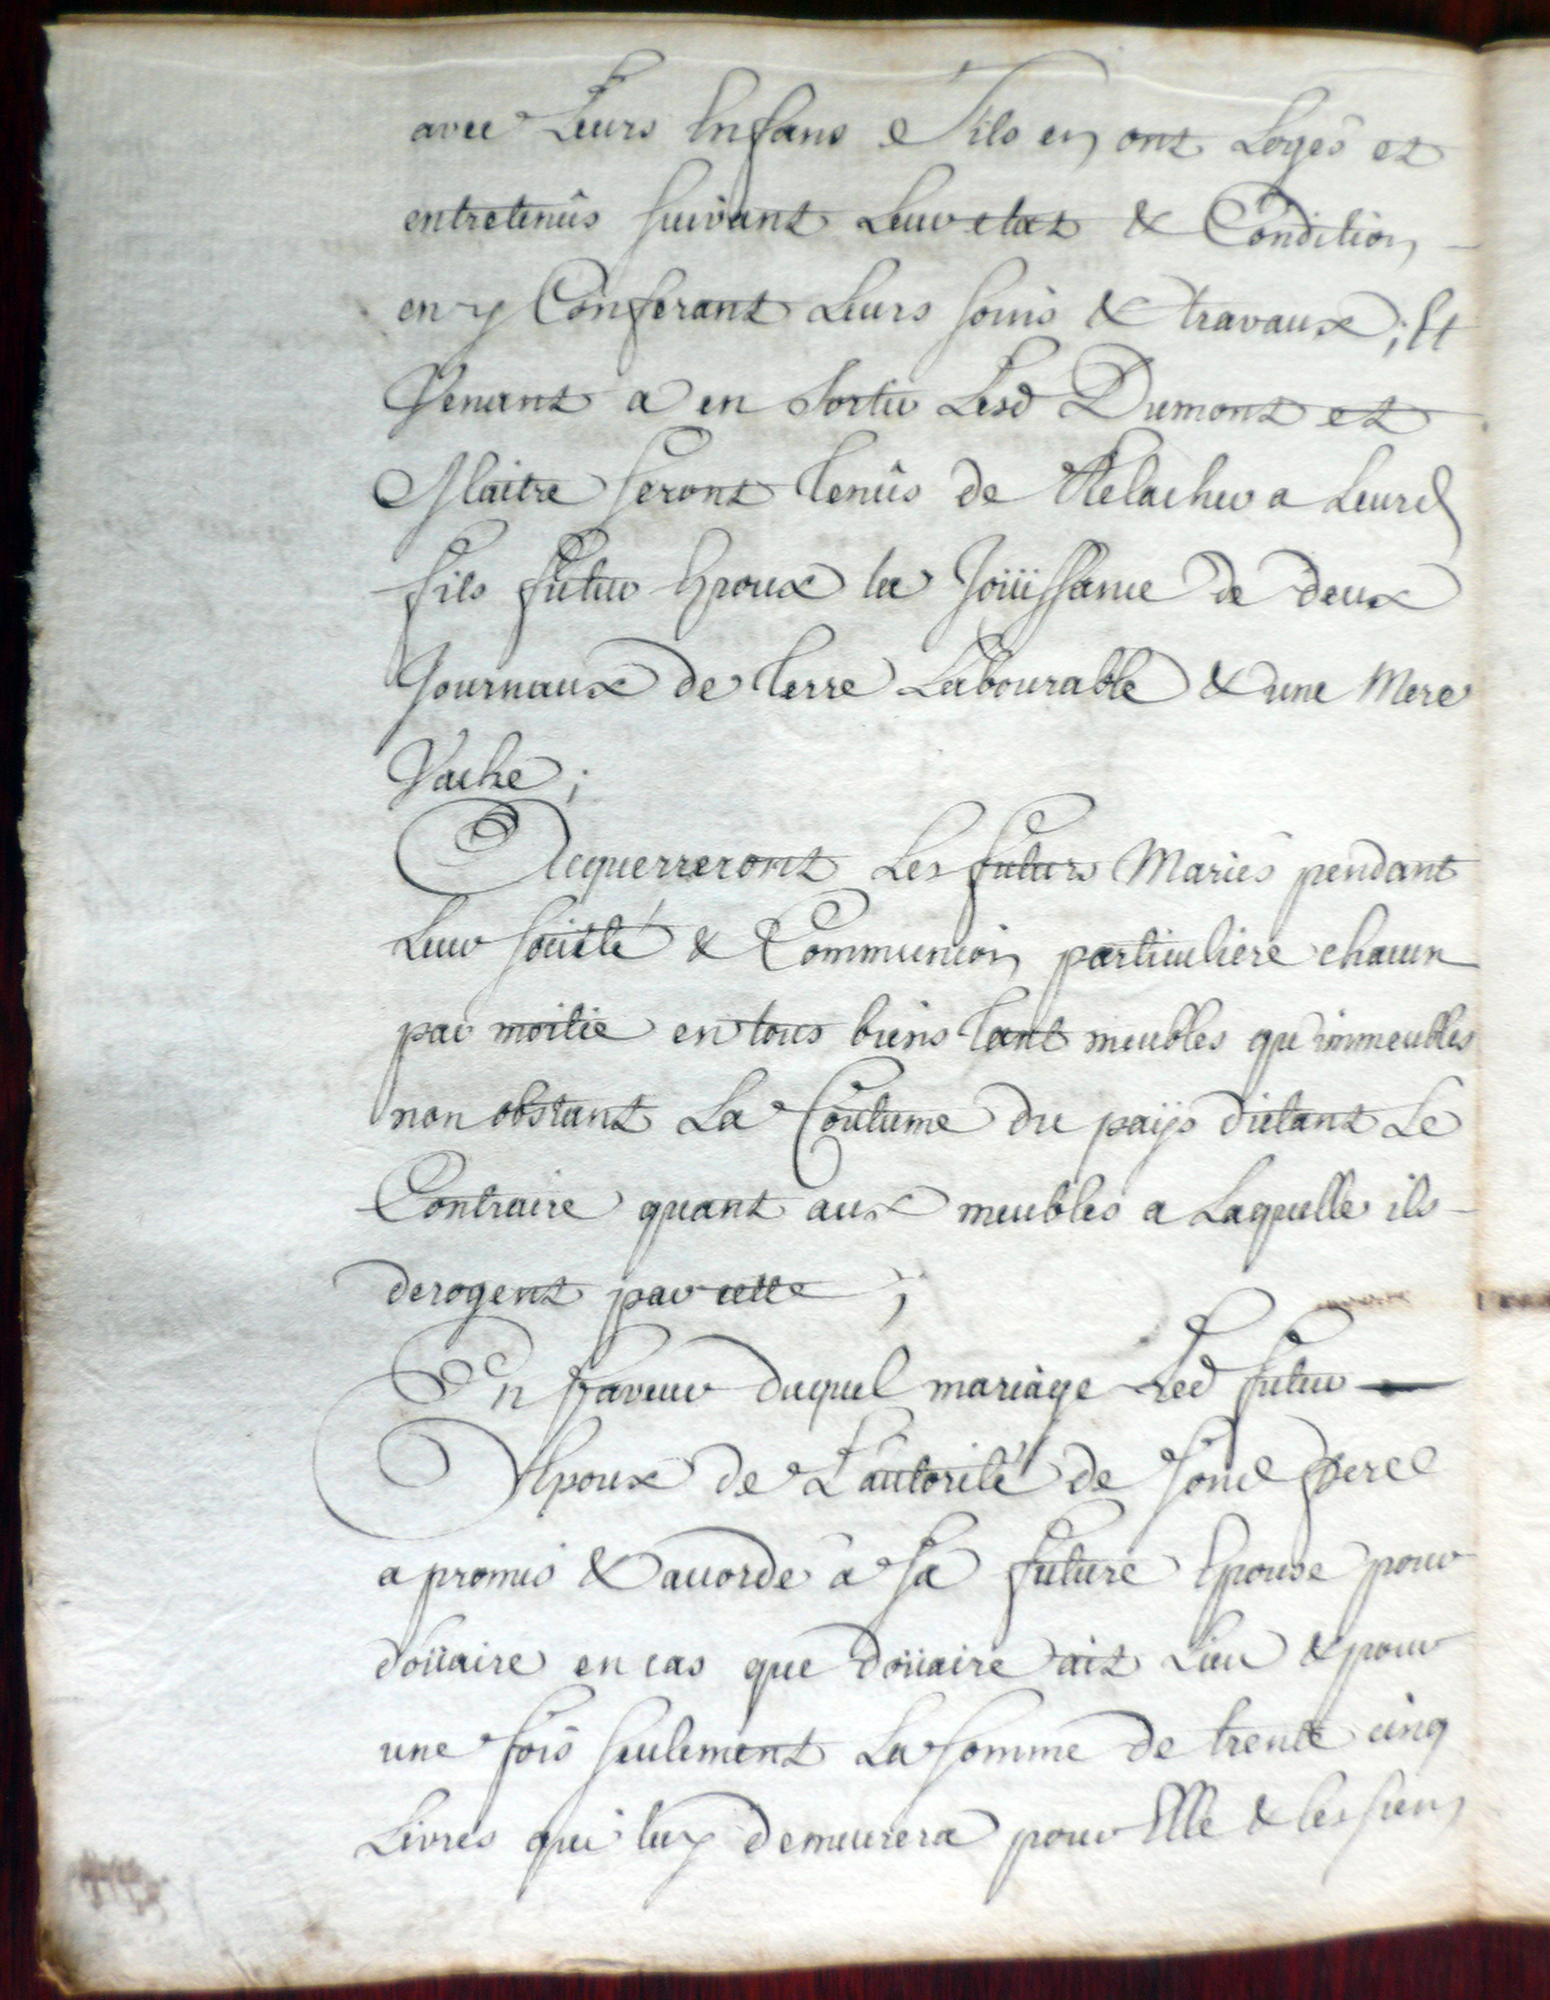 avec Leurs Enfans S'ils en ont Logés et
entretenûs suivant Leur etat & Condition
en y Conferant Leurs soins & travaux; Et
Venant a en Sortir Lesd Dumont et
Maitre seront tenûs de Relacher a Leurd
fils futur Epoux la Joüissance de deux
Journaux de terre Labourable & une Mere
Vache;
Acquerreront Les futurs Mariés pendant
Leur société & Communion particuliere chacun
par moitie en tous biens tant meubles qu'immeubles
non obstant La Coutume du païs dictant Le
Contraire quant aux meubles a Laquelle ils
derogent par cette;
En faveur duquel mariage Led futur
Epoux de L'autorité de Sond pere
a promis & accordé a Sa future Epouse pour
doüaire en cas que doüaire ait Lieu & pour
une fois seulement La Somme de trente cinq
Livres qui luy demeurera pour Elle & les siens